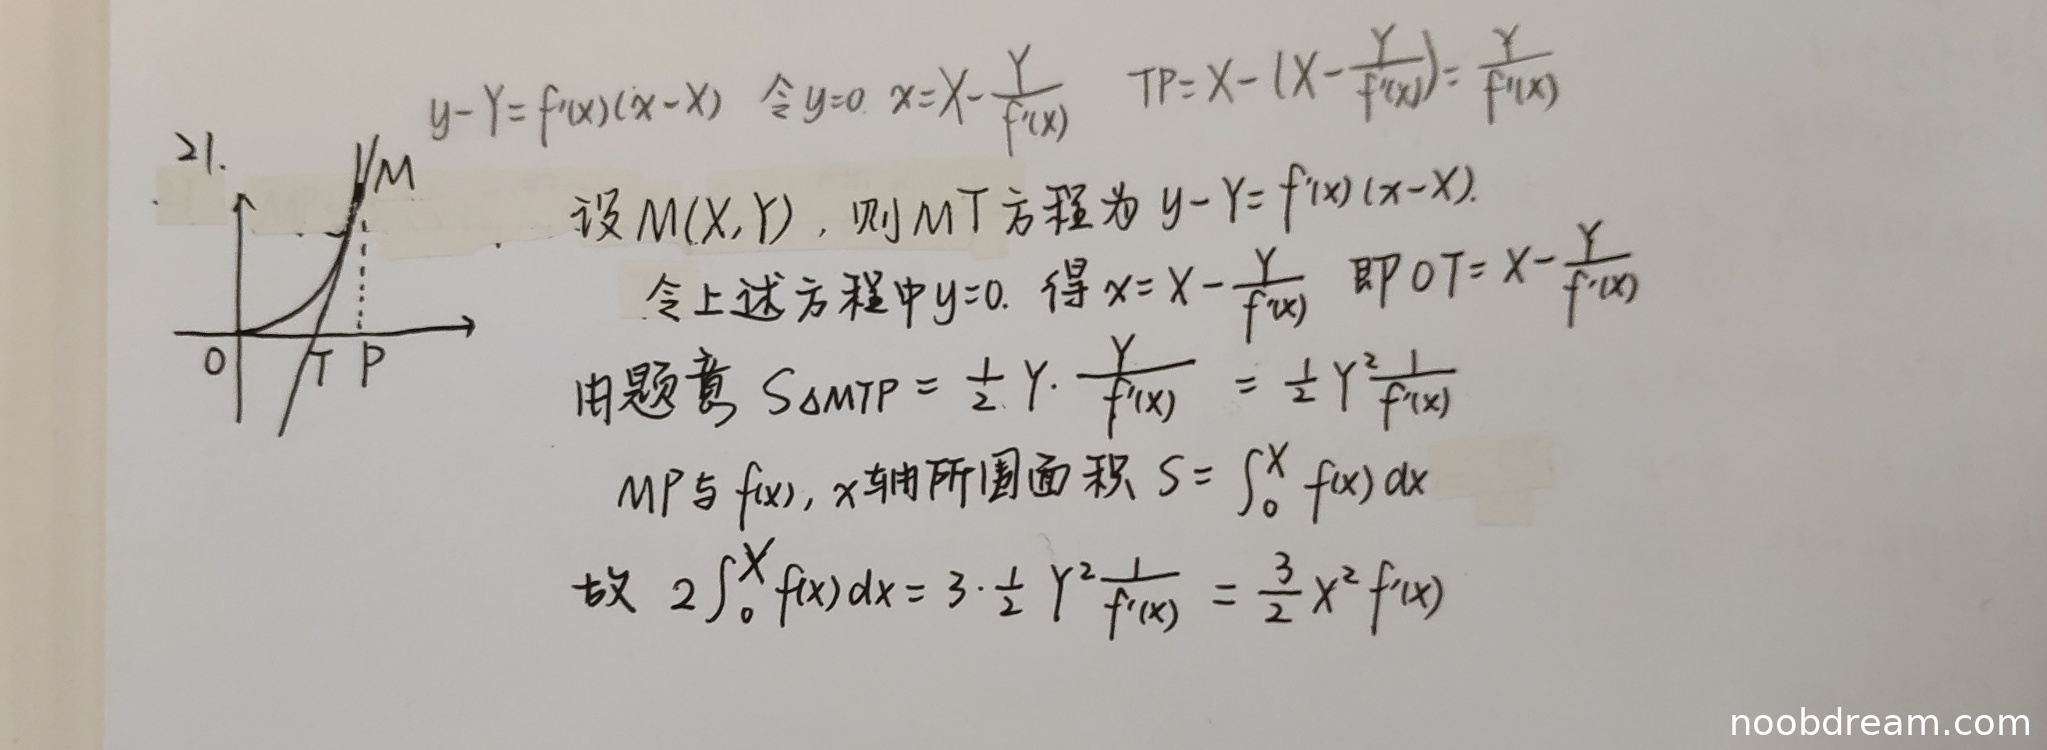 y-Y=f'(x)(x-X) 令y=0. x=X-Y/f'(X) TP=X-(X-Y/f'(X))=Y/f'(X)
21.
M
O T P
设M(X,Y),则MT方程为 y-Y=f'(x)(x-X).
令上述方程中y=0. 得 x=X-Y/f'(X) 即OT=X-Y/f'(X)
由题意 S△MTP = 1/2 Y·Y/f'(X) = 1/2 Y² 1/f'(X)
MP与f(x),x轴所围面积 S=∫₀ˣ f(x)dx
故 2∫₀ˣ f(x)dx=3·1/2 Y² 1/f'(X) = 3/2 X² f'(X)
noobdream.com